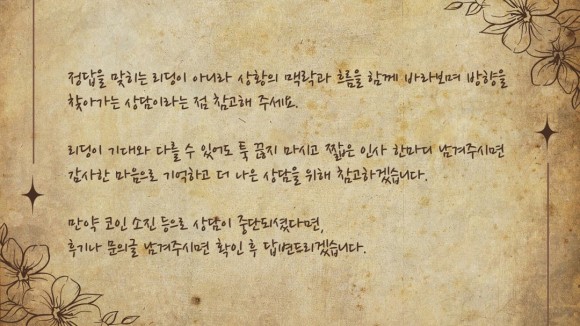 정답을 맞히는 리딩이 아니라 상황의 맥락과 흐름을 함께 바라보며 방향을
찾아가는 상담이라는 점 참고해 주세요.
리딩이 기대와 다를 수 있어도 툭 끊지 마시고 짧은 인사 한마디 남겨주시면
감사한 마음으로 기억하고 더 나은 상담을 위해 참고하겠습니다.
만약 코인 소진 등으로 상담이 중단되셨다면,
후기나 문의글 남겨주시면 확인 후 답변드리겠습니다.